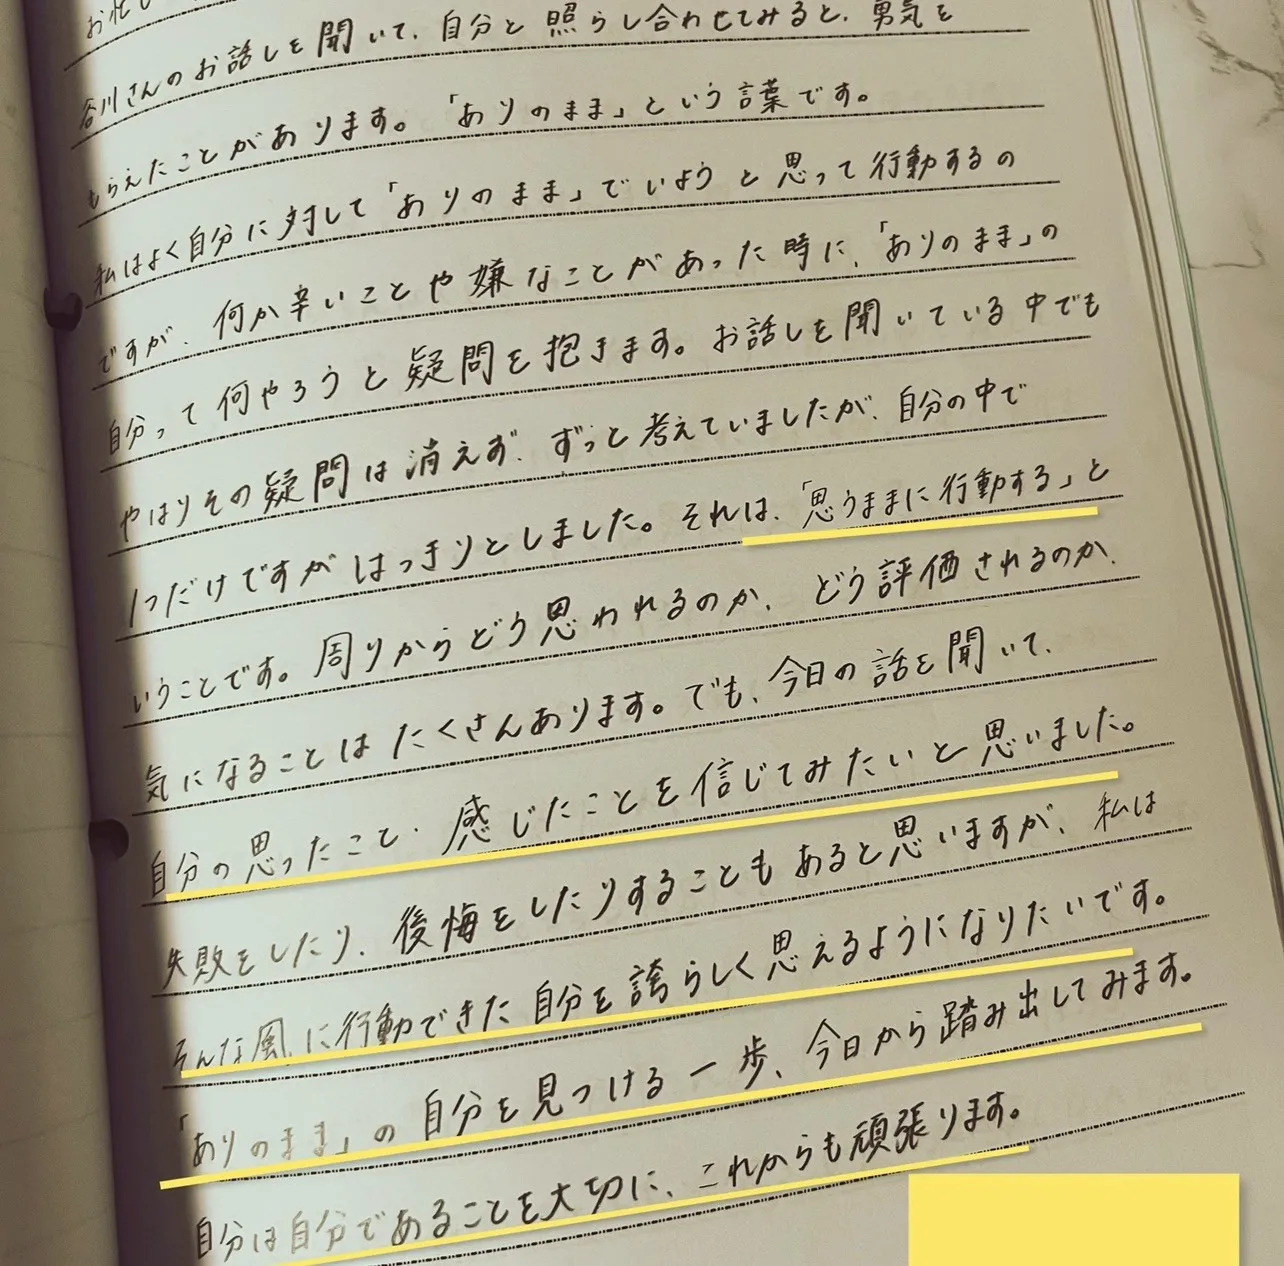 お忙し
谷川さんのお話しを聞いて、自分と照らし合わせてみると、勇気を
もらえたことがあります。「ありのまま」という言葉です。
私はよく自分に対して「ありのまま」でいようと思って行動するの
ですが、何か辛いことや嫌なことがあった時に、「ありのまま」の
自分って何やろうと疑問を抱きます。お話しを聞いている中でも
やはりその疑問は消えず、ずっと考えていましたが、自分の中で
1つだけですがはっきりとしました。それは、「思うままに行動する」と
いうことです。周りからどう思われるのか、どう評価されるのか、
気になることはたくさんあります。でも、今日の話を聞いて、
自分の思ったこと・感じたことを信じてみたいと思いました。
失敗をしたり、後悔をしたりすることもあると思いますが、私は
そんな風に行動できた自分を誇らしく思えるようになりたいです。
「ありのまま」の自分を見つける一歩、今日から踏み出してみます。
自分は自分であることを大切に、これからも頑張ります。